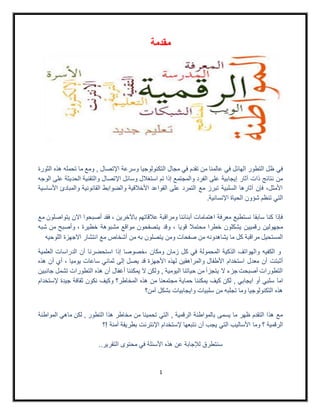 مقدمة
المواطنة
الرقمية
المعرفة
المدرسة
الأسرة
الوجوب
الشبكات
التعليم
التربية
الإنترنت
تعليم جديد
في ظل التطور الهائل في عالمنا من تقدم في مجال التكنولوجيا وسرعة الإتصال , ومع ما تحمله هذه الثورة
من نتائج ذات آثار إيجابية على الفرد والمجتمع إذا تم استغلال وسائل الإتصال والتقنية الحديثة على الوجه
الأمثل، فإن آثارها السلبية تبرز مع التمرد على القواعد الأخلاقية والضوابط القانونية والمبادئ الأساسية
التي تنظم شؤون الحياة الإنسانية.
فإذا كنا سابقا نستطيع معرفة اهتمامات أبنائنا ومراقبة علاقاتهم بالآخرين ، فقد أصبحوا الآن يتواصلون مع
مجهولين رقميين يشكلون خطرا محتملا قويا ، وقد يتصفحون مواقع مشبوهة خطيرة ، وأصبح من شبه
المستحيل مراقبة كل ما يشاهدونه من صفحات ومن يتصلون به من أشخاص مع انتشار الاجهزة اللوحيه
و الكفيه والهواتف الذكية المحمولة في كل زمان ومكان خصوصا إذا استحضرنا أن الدراسات العلمية
أثبتت أن معدل استخدام الأطفال والمراهقين لهذه الأجهزة قد يصل إلى ثماني ساعات يوميا ، أي أن هذه
التطورات أصبحت جزء لا يتجزأ من حياتنا اليومية , ولكن لا يمكننا أغفال أن هذه التطورات تشمل جانبين
اما سلبي أو ايجابي , لكن كيف يمكننا حماية مجتمعنا من هذه المخاطر؟ وكيف نكون ثقافة جيدة لإستخدام
هذه التكنولوجيا وما تجلبه من سلبيات وايجابيات بشكل آمن؟
مع هذا التقدم ظهر ما يسمى بالمواطنة الرقمية , التي تحمينا من مخاطر هذا التطور , لكن ماهي المواطنة
الرقمية ؟ وما الأساليب التي يجب أن نتبعها لإستخدام الإنترنت بطريقة آمنة !؟
سنتطرق للإجابة عن هذه الأسئلة في محتوى التقرير..
1